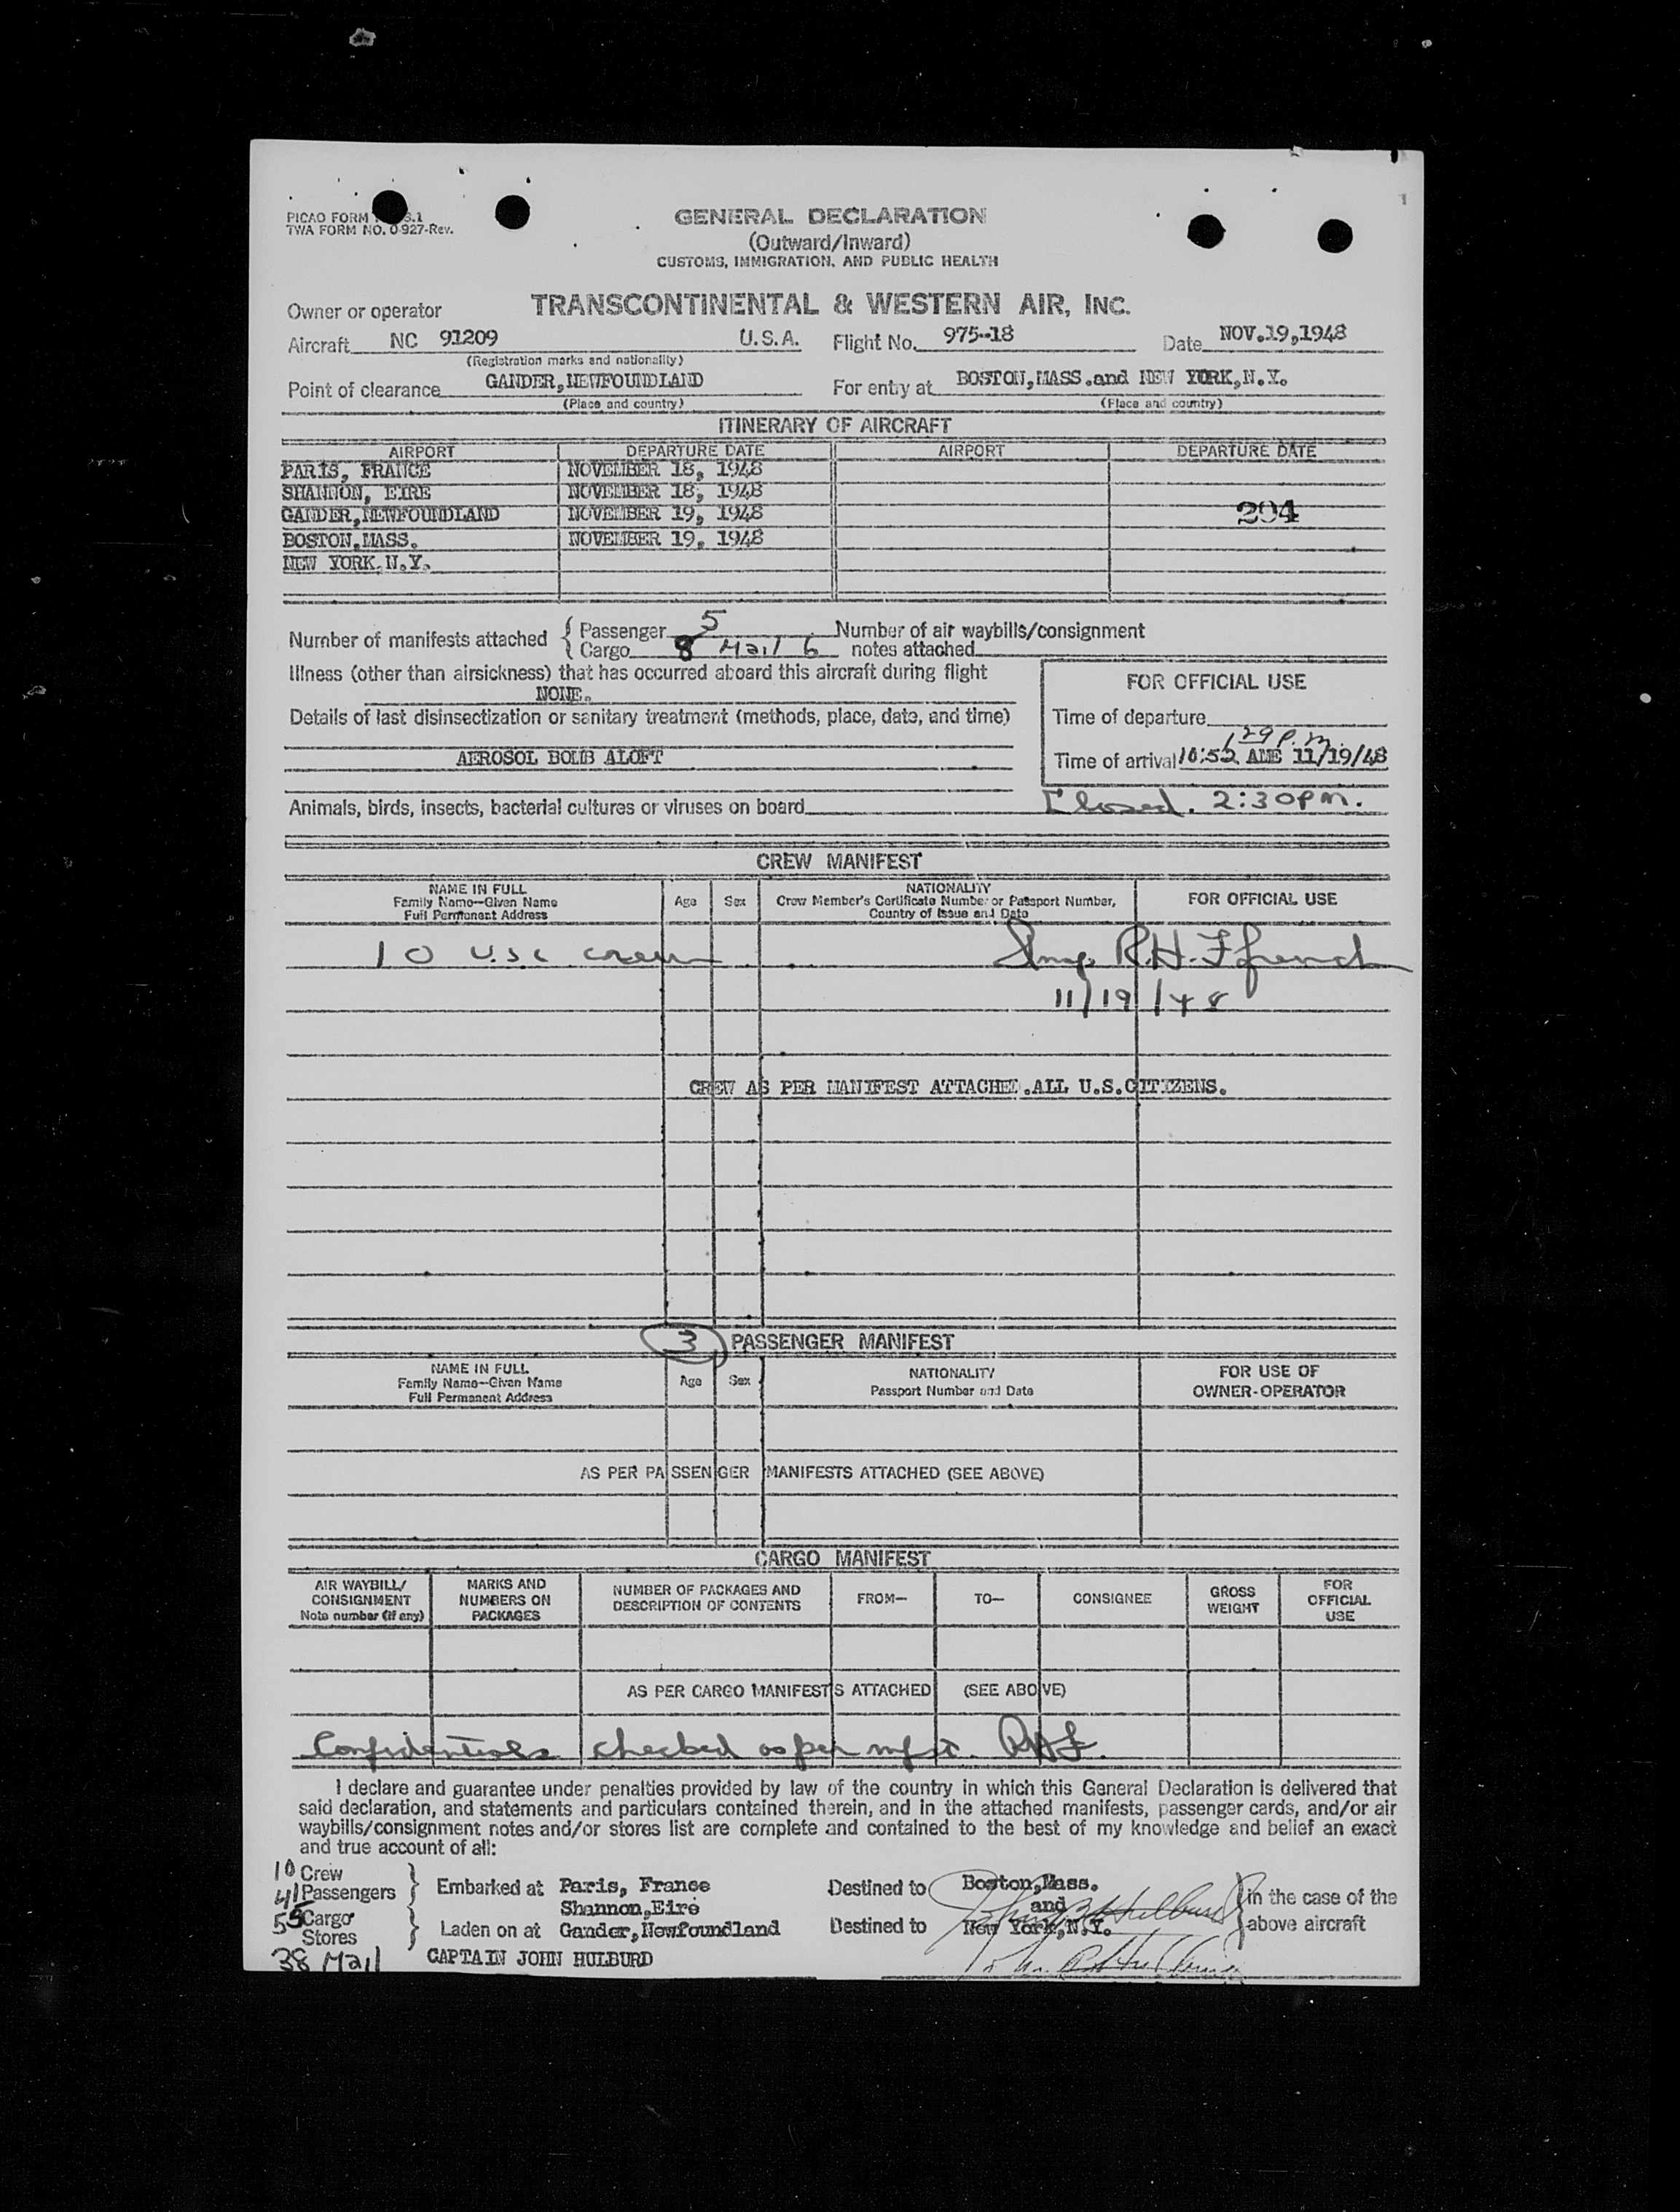 PICAO FORM S.1
TWA FORM NO. O-927-Rev.
GENERAL DECLARATION
(Outward/Inward)
CUSTOMS, IMMIGRATION, AND PUBLIC HEALTH
Owner or operator TRANSCONTINENTAL & WESTERN AIR, INC.
Aircraft NC 91209 U.S.A. Flight No. 975-18 Date NOV.19,1948
(Registration marks and nationality)
Point of clearance GANDER,NEWFOUNDLAND For entry at BOSTON,MASS.and NEW YORK,N.Y.
(Place and country) (Place and country)
ITINERARY OF AIRCRAFT
AIRPORT DEPARTURE DATE AIRPORT DEPARTURE DATE
PARIS, FRANCE NOVEMBER 18, 1948
SHANNON, EIRE NOVEMBER 18, 1948
GANDER,NEWFOUNDLAND NOVEMBER 19, 1948 294
BOSTON,MASS. NOVEMBER 19, 1948
NEW YORK,N.Y.
Number of manifests attached { Passenger 5 Number of air waybills/consignment
Cargo 8 Mail 6 notes attached
Illness (other than airsickness) that has occurred aboard this aircraft during flight
NONE.
FOR OFFICIAL USE
Details of last disinsectization or sanitary treatment (methods, place, date, and time)
Time of departure
1 29 P.m.
AEROSOL BOMB ALOFT
Time of arrival 10:52 AME 11/19/48
Animals, birds, insects, bacterial cultures or viruses on board Closed. 2:30pm.
CREW MANIFEST
NAME IN FULL
Family Name—Given Name
Full Permanent Address
Age Sex
NATIONALITY
Crew Member's Certificate Number or Passport Number,
Country of Issue and Date
FOR OFFICIAL USE
10 U.S.C crew Imp. R.H.Ffrench
11/19/48
CREW AS PER MANIFEST ATTACHED.ALL U.S.CITIZENS.
3 PASSENGER MANIFEST
NAME IN FULL
Family Name—Given Name
Full Permanent Address
Age Sex
NATIONALITY
Passport Number and Date
FOR USE OF
OWNER-OPERATOR
AS PER PASSENGER MANIFESTS ATTACHED (SEE ABOVE)
CARGO MANIFEST
AIR WAYBILL/
CONSIGNMENT
Note number (if any)
MARKS AND
NUMBERS ON
PACKAGES
NUMBER OF PACKAGES AND
DESCRIPTION OF CONTENTS
FROM— TO— CONSIGNEE
GROSS
WEIGHT
FOR
OFFICIAL
USE
AS PER CARGO MANIFESTS ATTACHED (SEE ABOVE)
Confidentials checked as per mfst. RHF.
I declare and guarantee under penalties provided by law of the country in which this General Declaration is delivered that
said declaration, and statements and particulars contained therein, and in the attached manifests, passenger cards, and/or air
waybills/consignment notes and/or stores list are complete and contained to the best of my knowledge and belief an exact
and true account of all:
10 Crew
41 Passengers Embarked at Paris, France Destined to Boston,Mass. in the case of the
Shannon,Eire and
55 Cargo
Stores Laden on at Gander,Newfoundland Destined to New York,N.Y. above aircraft
38 Mail CAPTAIN JOHN HULBURD